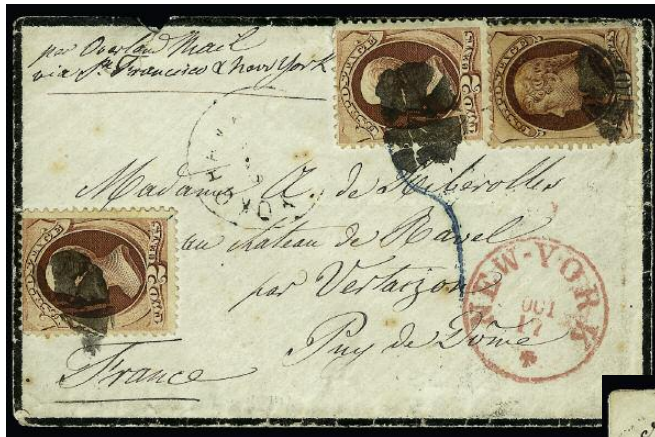 per Overland Mail
via St. Francisco & New York
Madame A. de Riberolles
au château de Ravel
par Vertaizon
Puy de Dôme
France
NEW-YORK
OCT
17